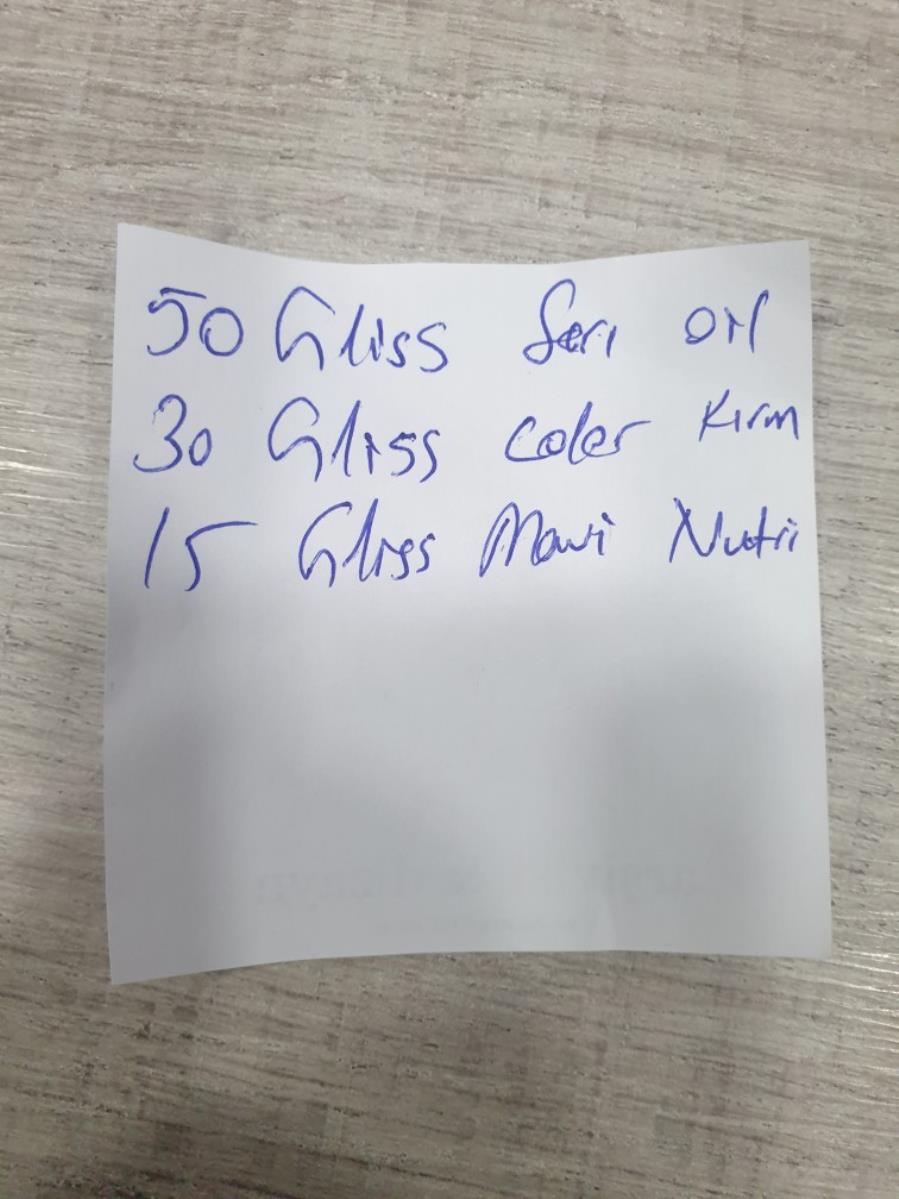 50 Gliss Seri oil
30 Gliss coler Kırm
15 Gliss Mavi Nutri